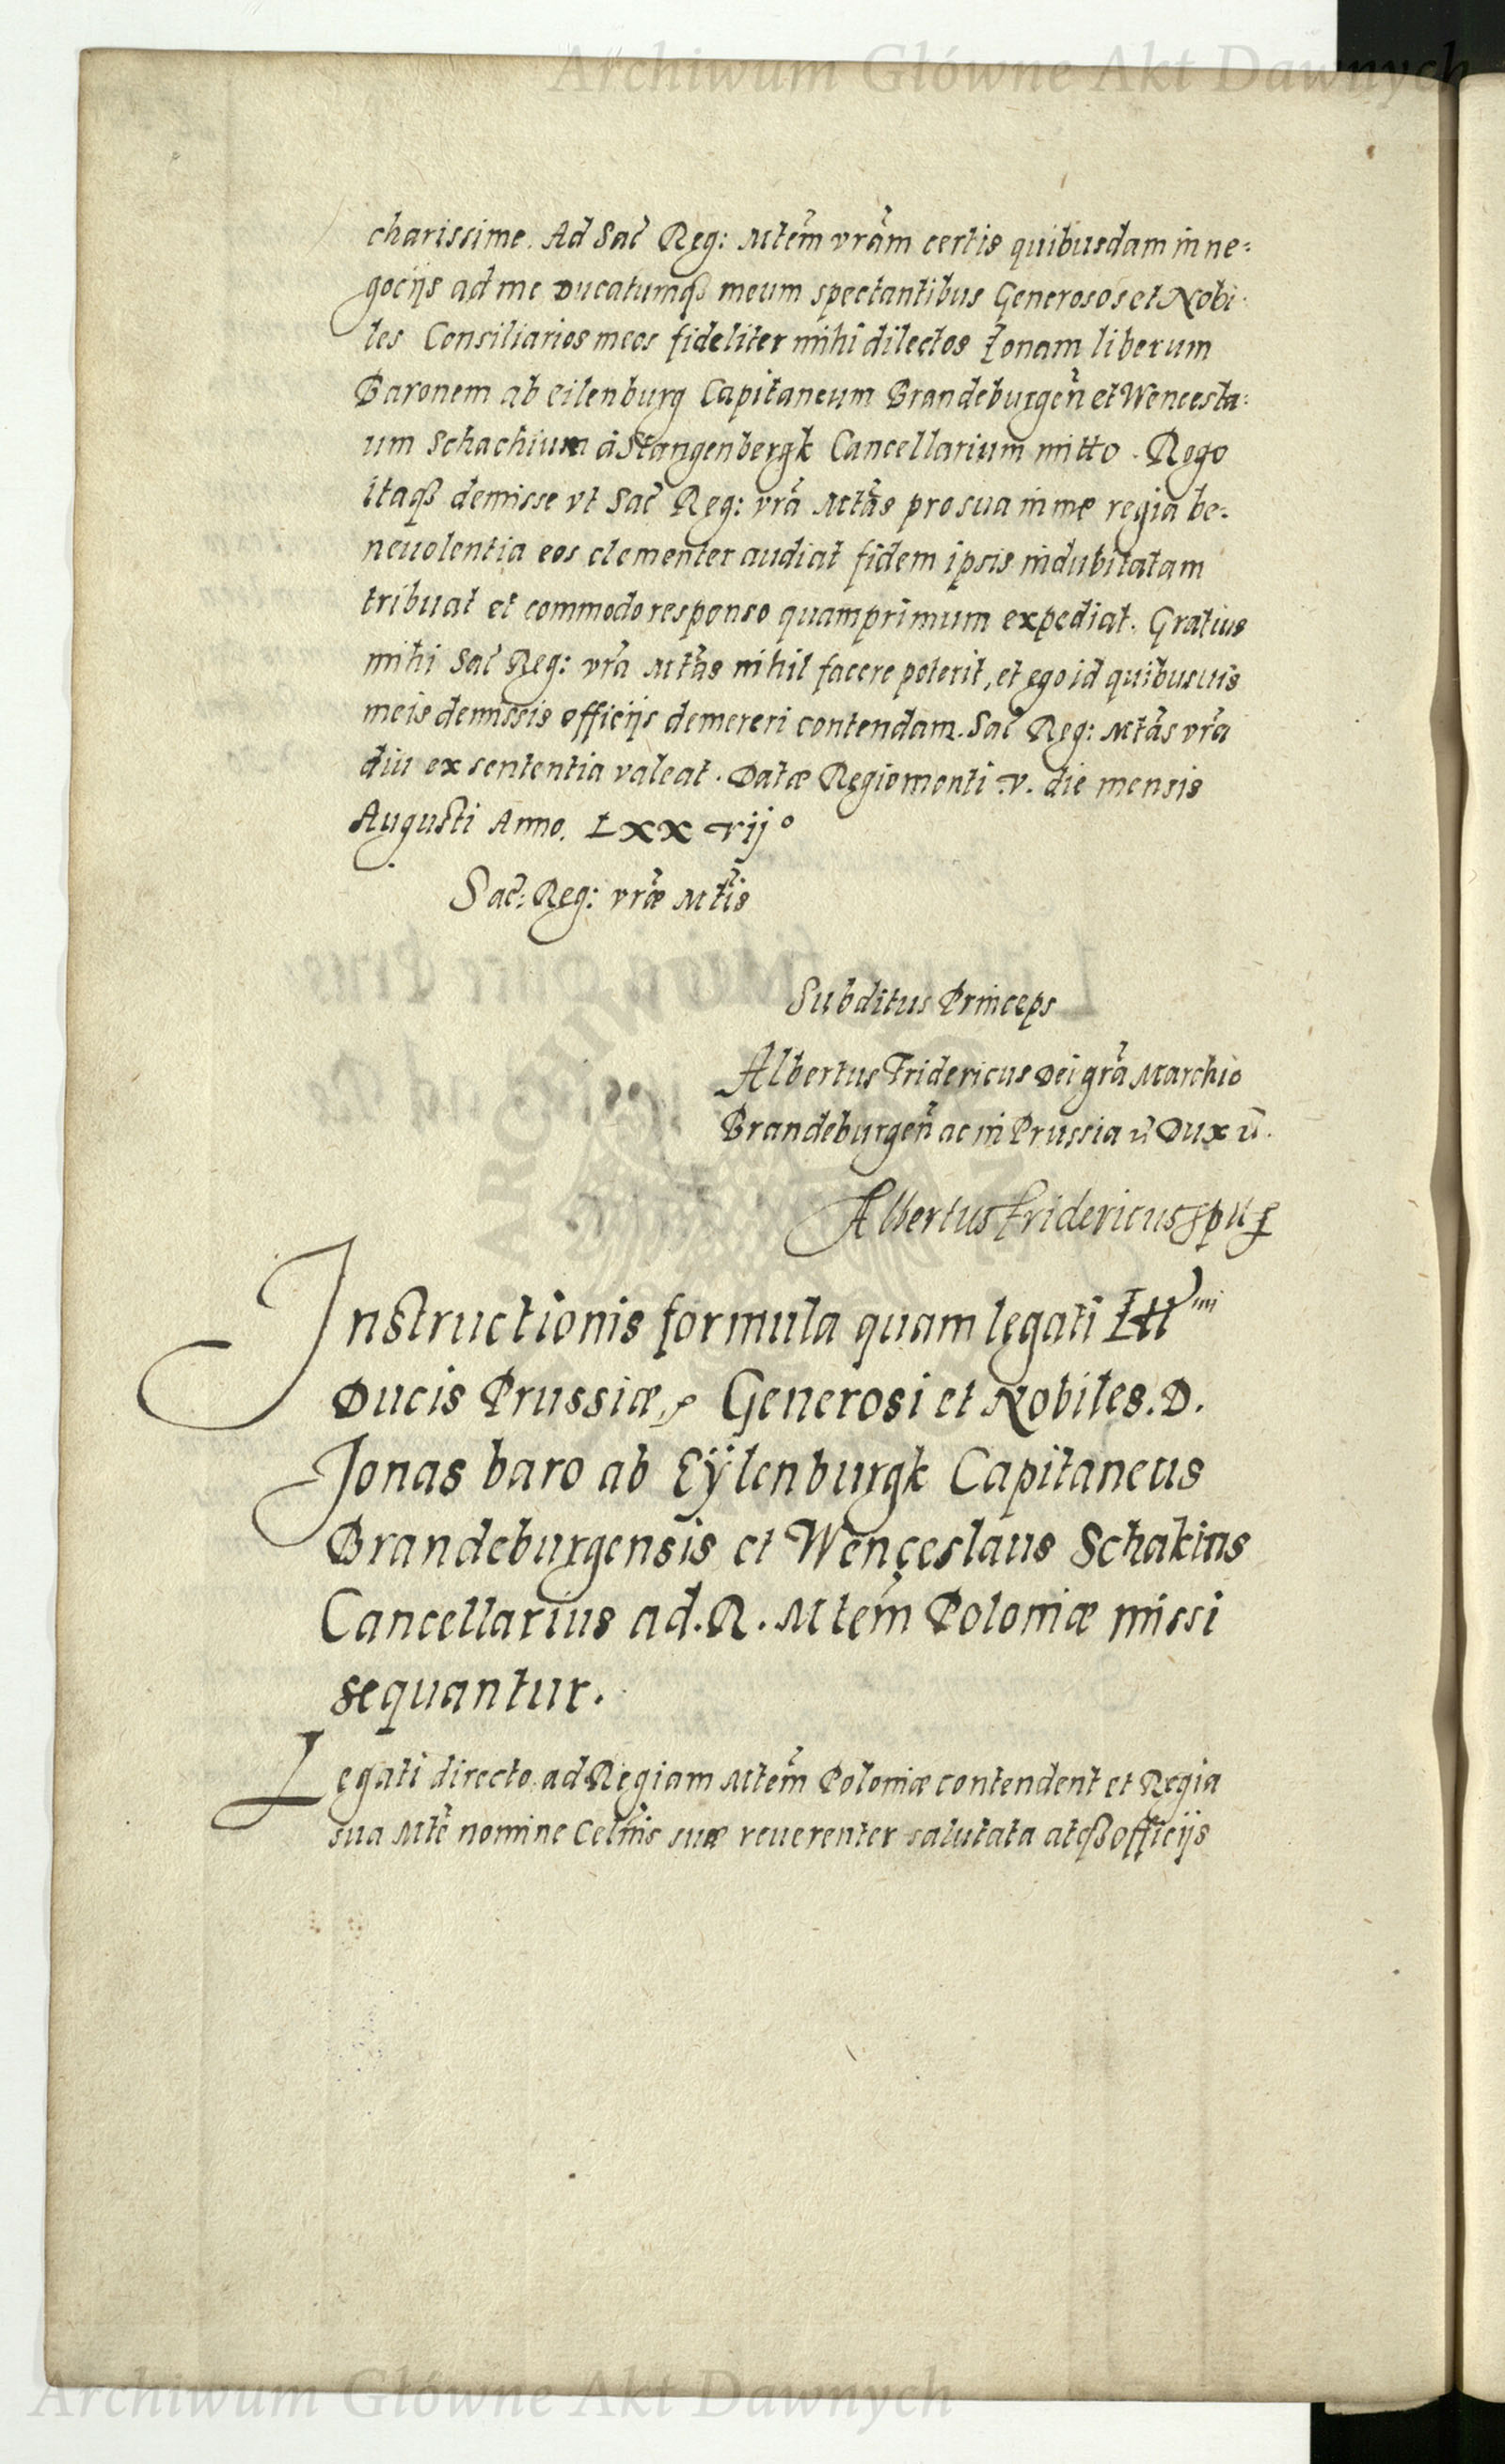 Archiwum Główne Akt Dawnych
charissime. Ad Sac̃ Reg: Mtem̃ vrãm certis quibusdam in ne=
gocijs ad me Ducatumqȝ meum spectantibus Generosos et Nobi-
les Consiliarios meos fideliter mihi dilectos Jonam liberum
Baronem ab Eilenburg Capitaneum Brandeburgeñ et Wencesla=
um Schachium à Stangenbergk Cancellarium mitto. Rogo
itaqȝ demisse vt Sac̃ Reg: vrã Mtãs pro sua in me regia be-
neuolentia eos clementer audiat fidem ipsis indubitatam
tribuat et commodo responso quamprimum expediat. Gratius
mihi Sac̃ Reg: vrã Mtãs nihil facere poterit, et ego id quibusuis
meis demissis officijs demereri contendam. Sac̃ Reg: Mtãs vrã
diu ex sententia valeat. Datæ Regiomonti v. die mensis
Augusti Anno. Lxx vijº
Sac̃: Reg: vræ̃ Mtĩs
Subditus Princeps
Albertus Fridericus Dei grã Marchio
Brandeburgeñ ac in Prussia Dux
Albertus Fridericus
Instructionis formula quam legati Illmi
Ducis Prussiæ, Generosi et Nobiles. D.
Jonas baro ab Eÿlenburgk Capitaneus
Brandeburgensis et Wenceslaus Schakius
Cancellarius ad. R. Mtem̃ Poloniæ missi
sequantur.
Legati directo ad Regiam Mtem̃ Poloniæ contendent et Regia
sua Mtẽ nomine Celnĩs suæ reuerenter salutata atqȝ officijs
Archiwum Główne Akt Dawnych